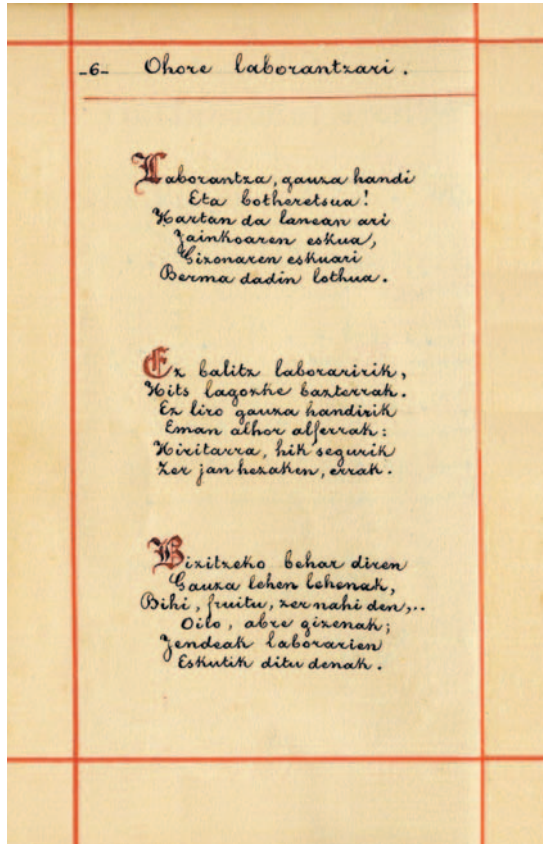 -6- Ohore laborantzari.
Laborantza, gauza handi
Eta botheretsua!
Hartan da lanean ari
Jainkoaren eskua,
Gizonaren eskuari
Berma dadin lothua.
Ez balitz laboraririk,
Hits lagozke bazterrak.
Ez liro gauza handirik
Eman alhor alferrak:
Hiritarra, hik segurik
Zer jan hezaken, errak.
Bizitzeko behar diren
Gauza lehen lehenak,
Bihi, fruitu, zer nahi den,..
Oilo, abre gizenak;
Jendeak laborarien
Eskutik ditu denak.